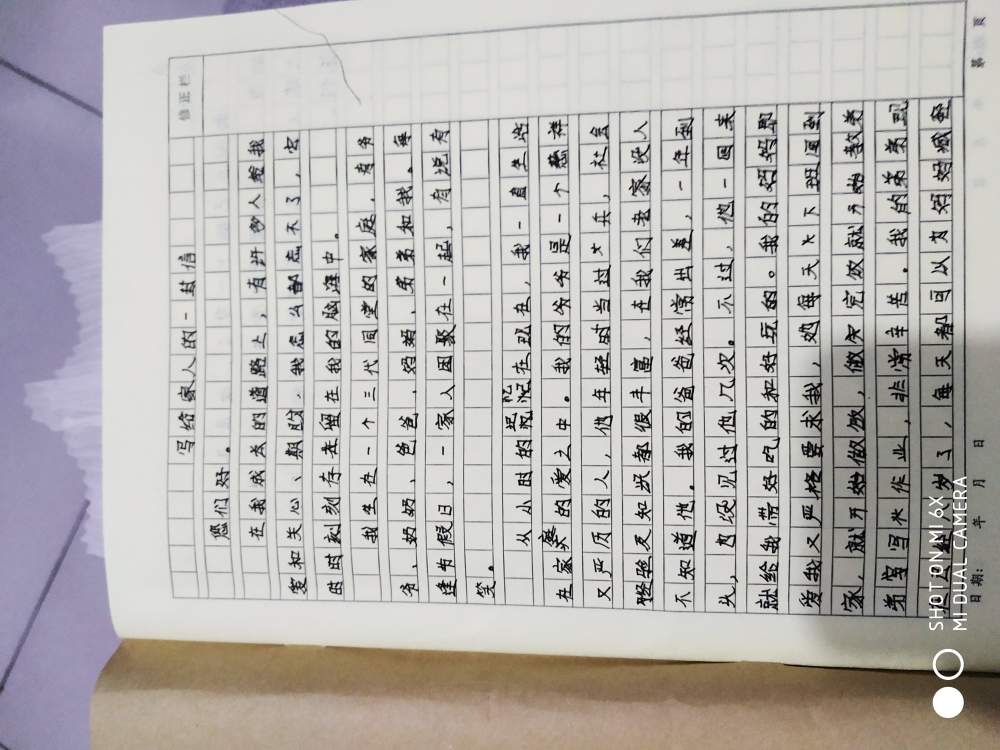 修正栏
写给家人的一封信
您们好。
在我成长的道路上,有许多人给我
爱和关心、期盼,我怎么都忘不了,它
时时刻刻存者留在我的脑海中。
我生在一个三代同堂的家庭,有爷
爷、奶奶、爸爸、妈妈、弟弟和我。每
逢节假日,一家人团聚在一起,有说有
笑。
从小时的记忆在现在,我一直生活
在家的爱之中。我的爷爷是一个慈祥
又严历的人,他年轻时当过兵,社会
经验及知识都很丰富,在我们老家没人
不知道他。我的爸爸经常出差,一年到
头,也没见过他几次。不过,他一回来
就给我带好吃的和好玩的。我的妈妈即
爱我又严格要求我,妈每天下班回到
家,就开始做饭,做完饭就开始教弟
弟写作业,非常辛苦。我的弟弟现
岁了,每天都可以为妈妈减轻
第 页
日期: 年 月 日
SHOT ON MI 6X
MI DUAL CAMERA